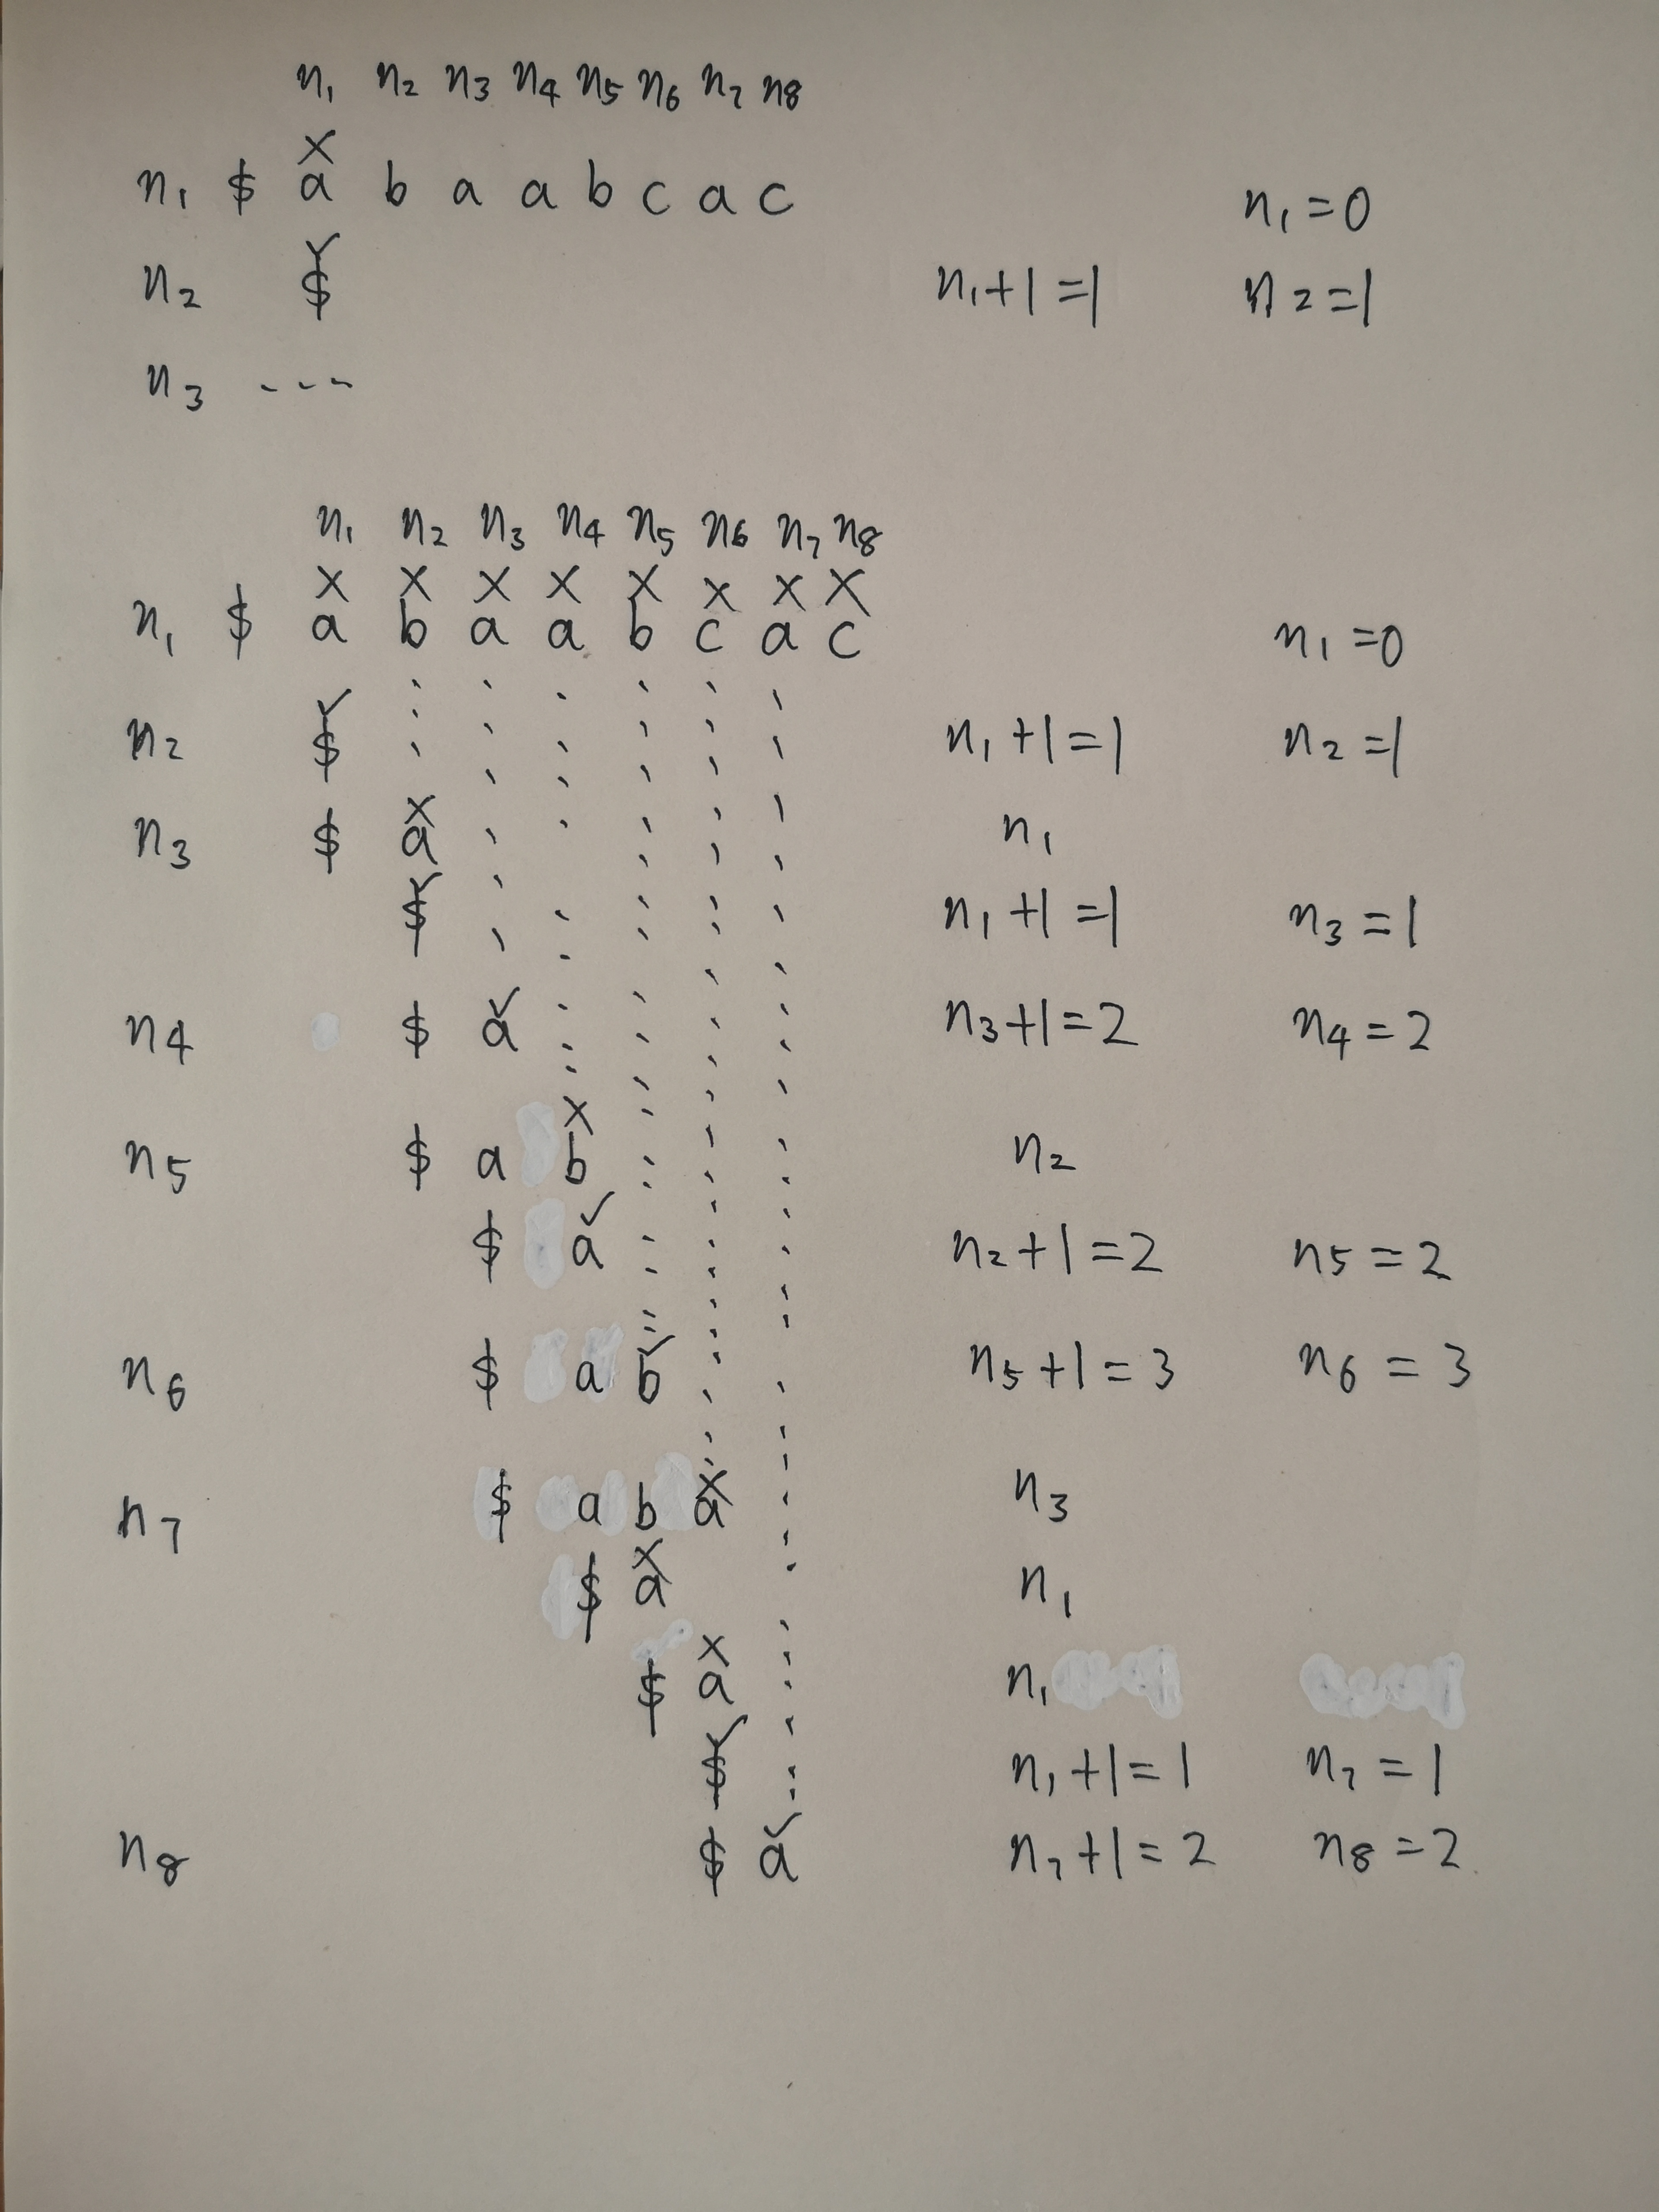 n₁ n₂ n₃ n₄ n₅ n₆ n₇ n₈
×
n₁ $ a b a a b c a c n₁=0
✓
n₂ $ n₁+1=1 n₂=1
n₃ ---
n₁ n₂ n₃ n₄ n₅ n₆ n₇ n₈
× × × × × × × ×
n₁ $ a b a a b c a c n₁=0
✓
n₂ $ n₁+1=1 n₂=1
×
n₃ $ a n₁
✓
$ n₁+1=1 n₃=1
✓
n₄ $ a n₃+1=2 n₄=2
×
n₅ $ a b n₂
✓
$ a n₂+1=2 n₅=2
✓
n₆ $ a b n₅+1=3 n₆=3
×
n₇ $ a b a n₃
×
$ a n₁
×
$ a n₁
✓
$ n₁+1=1 n₇=1
✓
n₈ $ a n₇+1=2 n₈=2